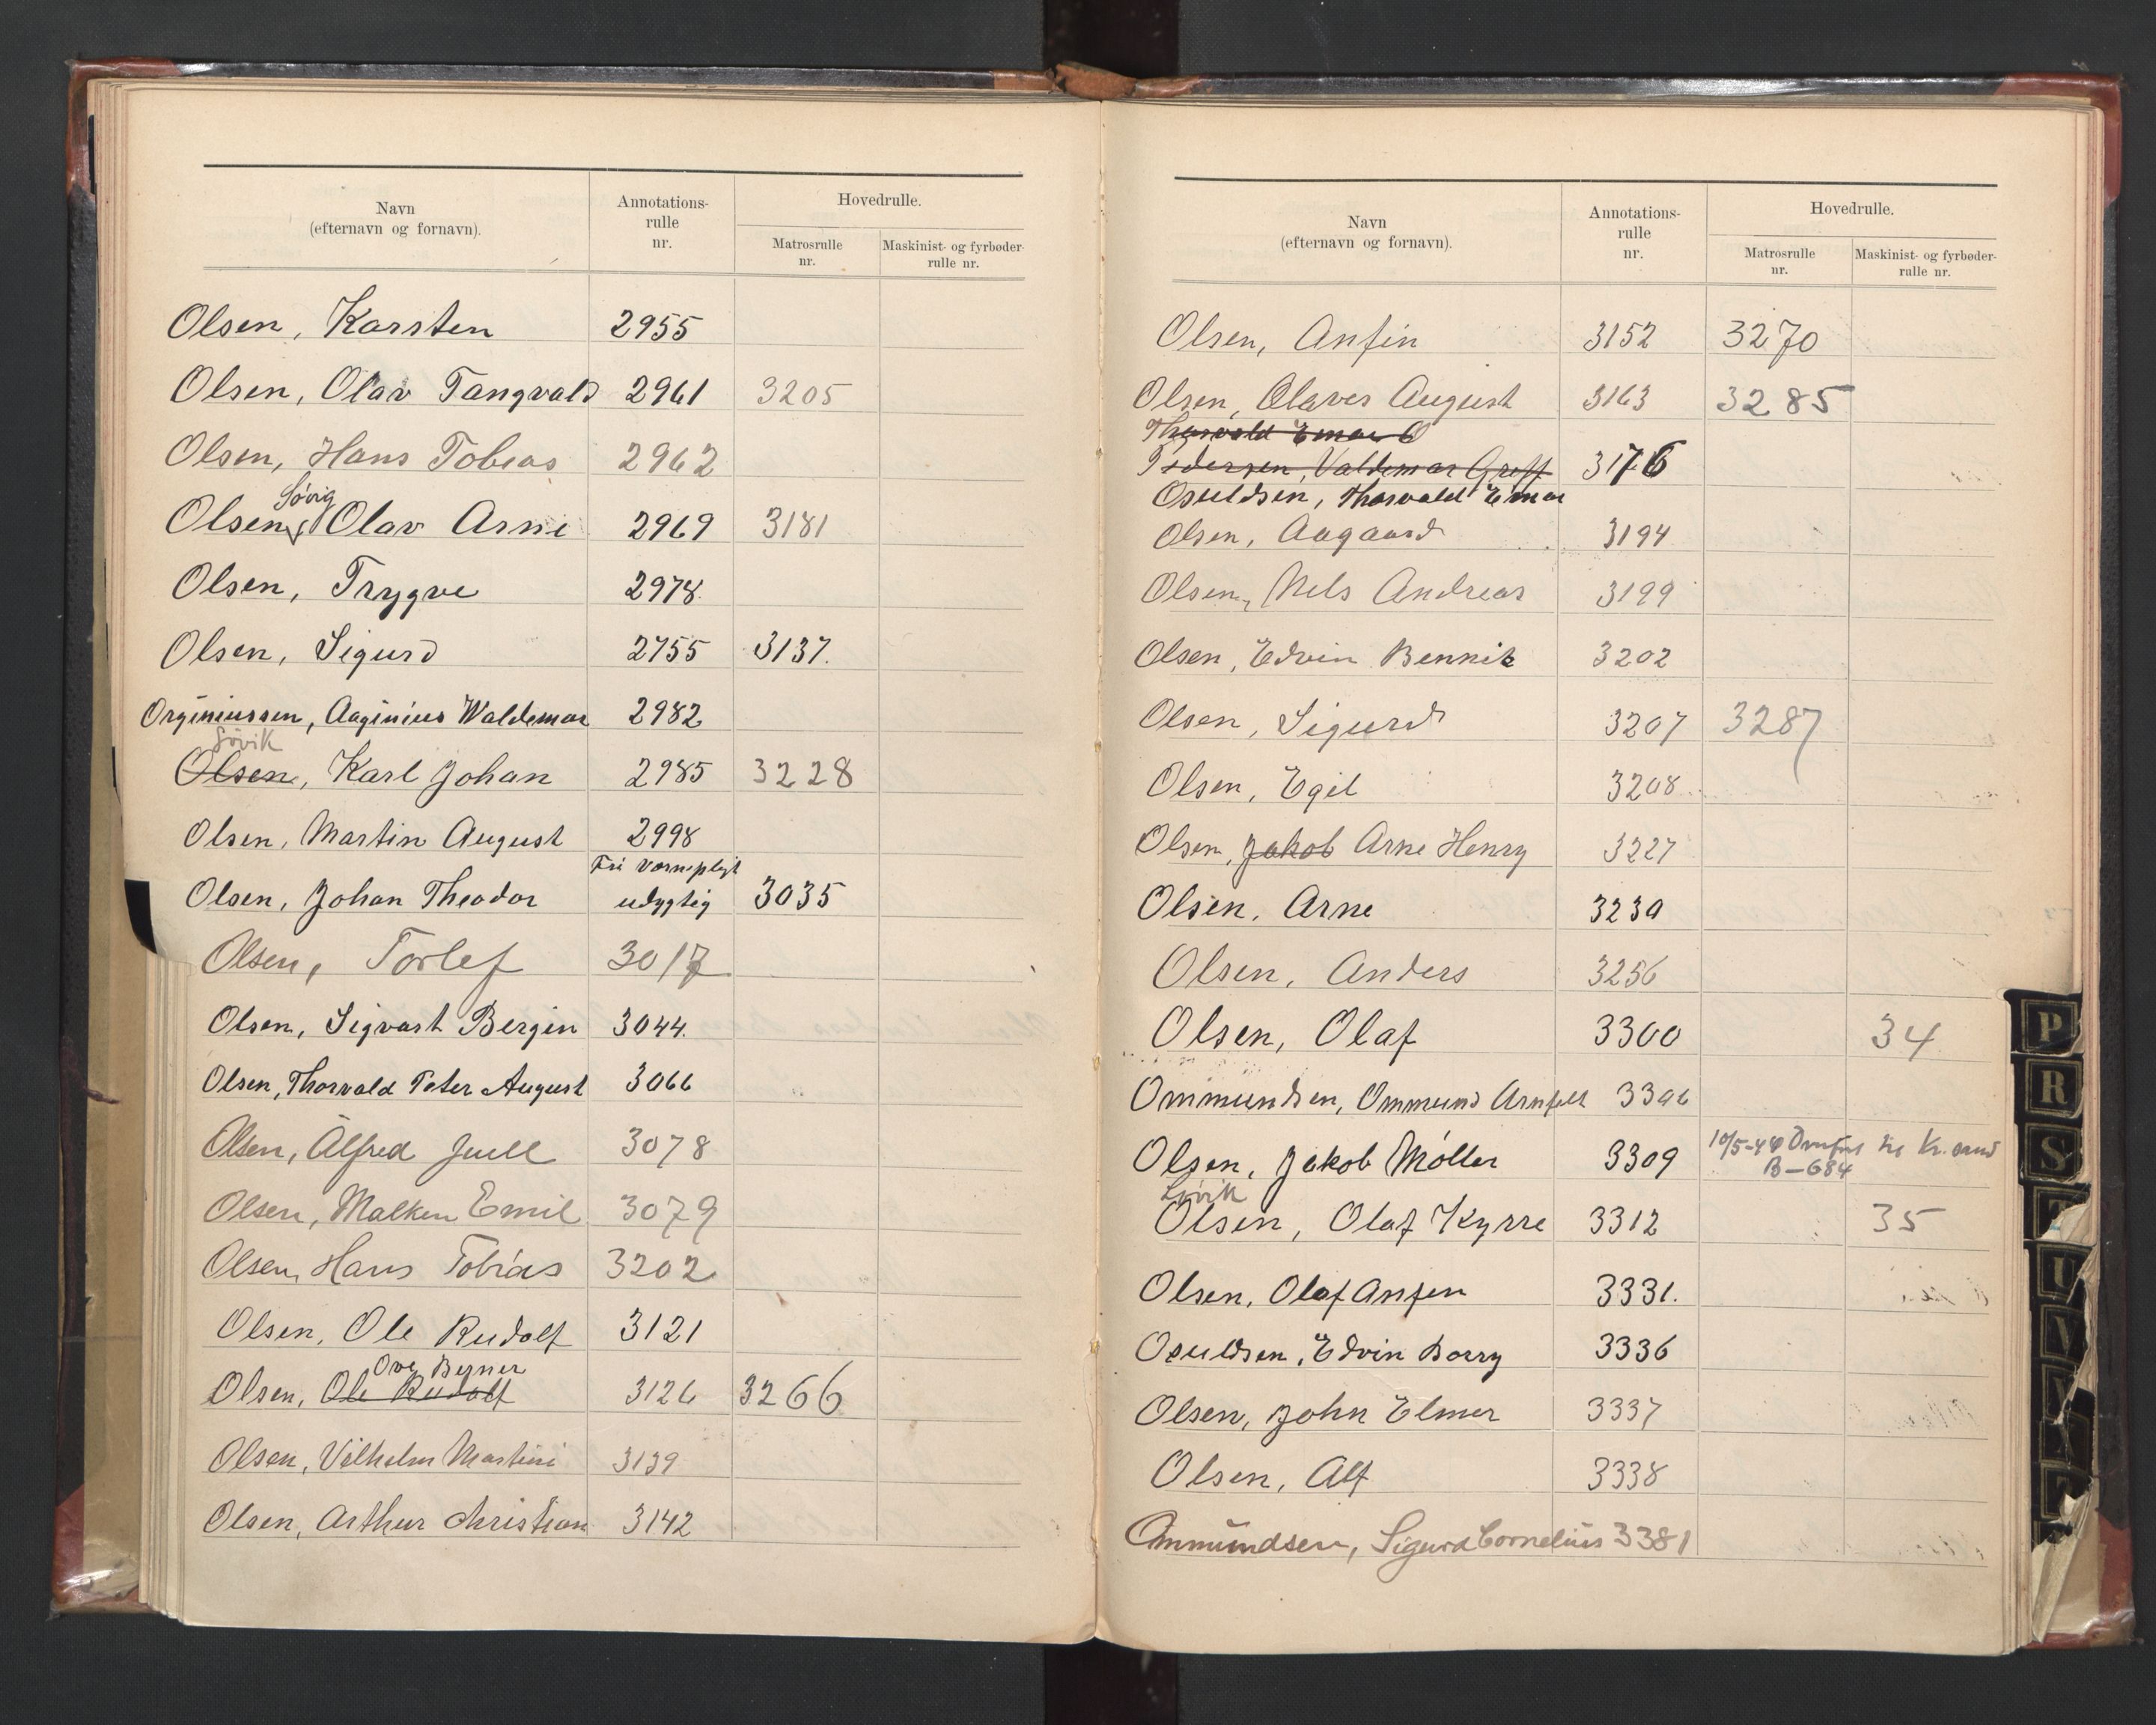 Navn
(efternavn og fornavn).
Annotations-
rulle
nr.
Hovedrulle.
Matrosrulle
nr.
Maskinist- og fyrbøder-
rulle nr.
Olsen, Karsten 2955
Olsen, Olav Tangvald 2961 3205
Olsen, Hans Tobias 2962
Søvig
Olsen, Olav Arne 2969 3181
Olsen, Trygve 2978.
Olsen, Sigurd 2755 3137.
Orginiussen, Aaginius Waldemar 2982
Søvik
Olsen, Karl Johan 2985 3228
Olsen, Martin August 2998
Fri vernepligt
Olsen, Johan Theodor udygtig 3035
Olsen, Torlef 3017
Olsen, Sigvart Bergin 3044.
Olsen, Thorvald Peter August 3066
Olsen, Alfred Juell 3078
Olsen, Malken Emil 3079
Olsen, Hans Tobias 3202
Olsen, Ole Rudolf 3121
Ove Berner
Olsen, Ole Rudolf 3126 3266
Olsen, Vilhelm Martini 3139
Olsen, Arthur Christian 3142
Navn
(efternavn og fornavn).
Annotations-
rulle
nr.
Hovedrulle.
Matrosrulle
nr.
Maskinist- og fyrbøder-
rulle nr.
Olsen, Anfin 3152 3270
Olsen, Olaves August 3163 3285
Thorvald Emar O
Pedersen, Valdemar Greff 3176
Osuldsen, Thorvald Emar
Olsen, Aagaard 3194
Olsen, Nels Andreas 3199
Olsen, Edvin Bennit 3202
Olsen, Sigurd 3207 3287
Olsen, Egil 3208
Olsen, Jakob Arne Henry 3227
Olsen, Arne 3230
Olsen, Anders 3256
Olsen, Olaf 3300 34
Ommundsen, Ommund Arnfelt 3306
Olsen, Jakob Møller 3309 10/5-44 Kr. sand
B-684
Løvik
Olsen, Olaf Kyrre 3312 35
Olsen, Olaf Anfen 3331.
Osuldsen, Edvin Borry 3336
Olsen, John Elmer 3337
Olsen, Alf 3338
Ommundsen, Sigurd Cornelius 3381
P
R
S
T
U
V